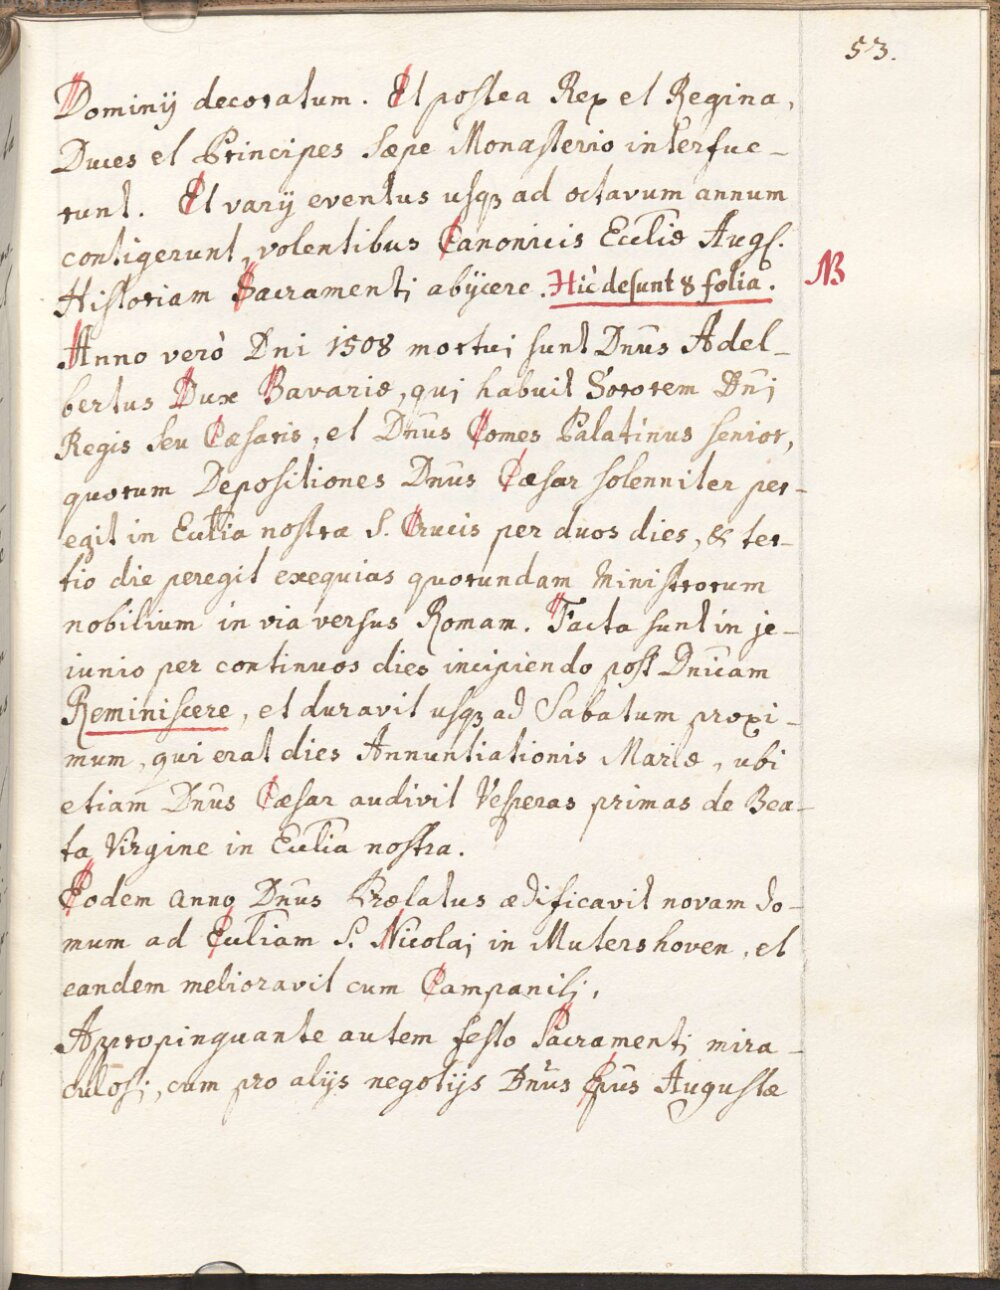 53.
Dominij decoratum. Et postea Rex et Regina,
Duces et Principes sæpe Monasterio interfue-
runt. Et varij eventus usqꝫ ad octavum annum
contigerunt, volentibus Canonicis Eccliæ Aug.
Historiam Sacramenti abijcere. Hic desunt 8 folia.
NB
Anno verò Dni 1508 mortui sunt Dnus Adel-
bertus Dux Bavariæ, qui habuit Sororem Dni
Regis seu Cæsaris, et Dnus Comes Palatinus senior,
quorum Depositiones Dnus Cæsar solenniter per-
egit in Ecclia nostra S. Crucis per duos dies, & ter-
tio die peregit exequias quorundam Ministrorum
nobilium in via versus Romam. Facta sunt in je-
iunio per continuos dies incipiendo post Dnicam
Reminiscere, et duravit usqꝫ ad Sabatum proxi-
mum, qui erat dies Annuntiationis Mariæ, ubi
etiam Dnus Cæsar audivit Vesperas primas de Bea-
ta Virgine in Ecclia nostra.
Eodem anno Dnus Prælatus ædificavit novam do-
mum ad Eccliam S. Nicolai in Mutershoven, et
eandem melioravit cum Campanili,
Appropinquante autem festo Sacramenti mira-
culosi, cum pro alijs negotijs Dnus Epus Augustæ